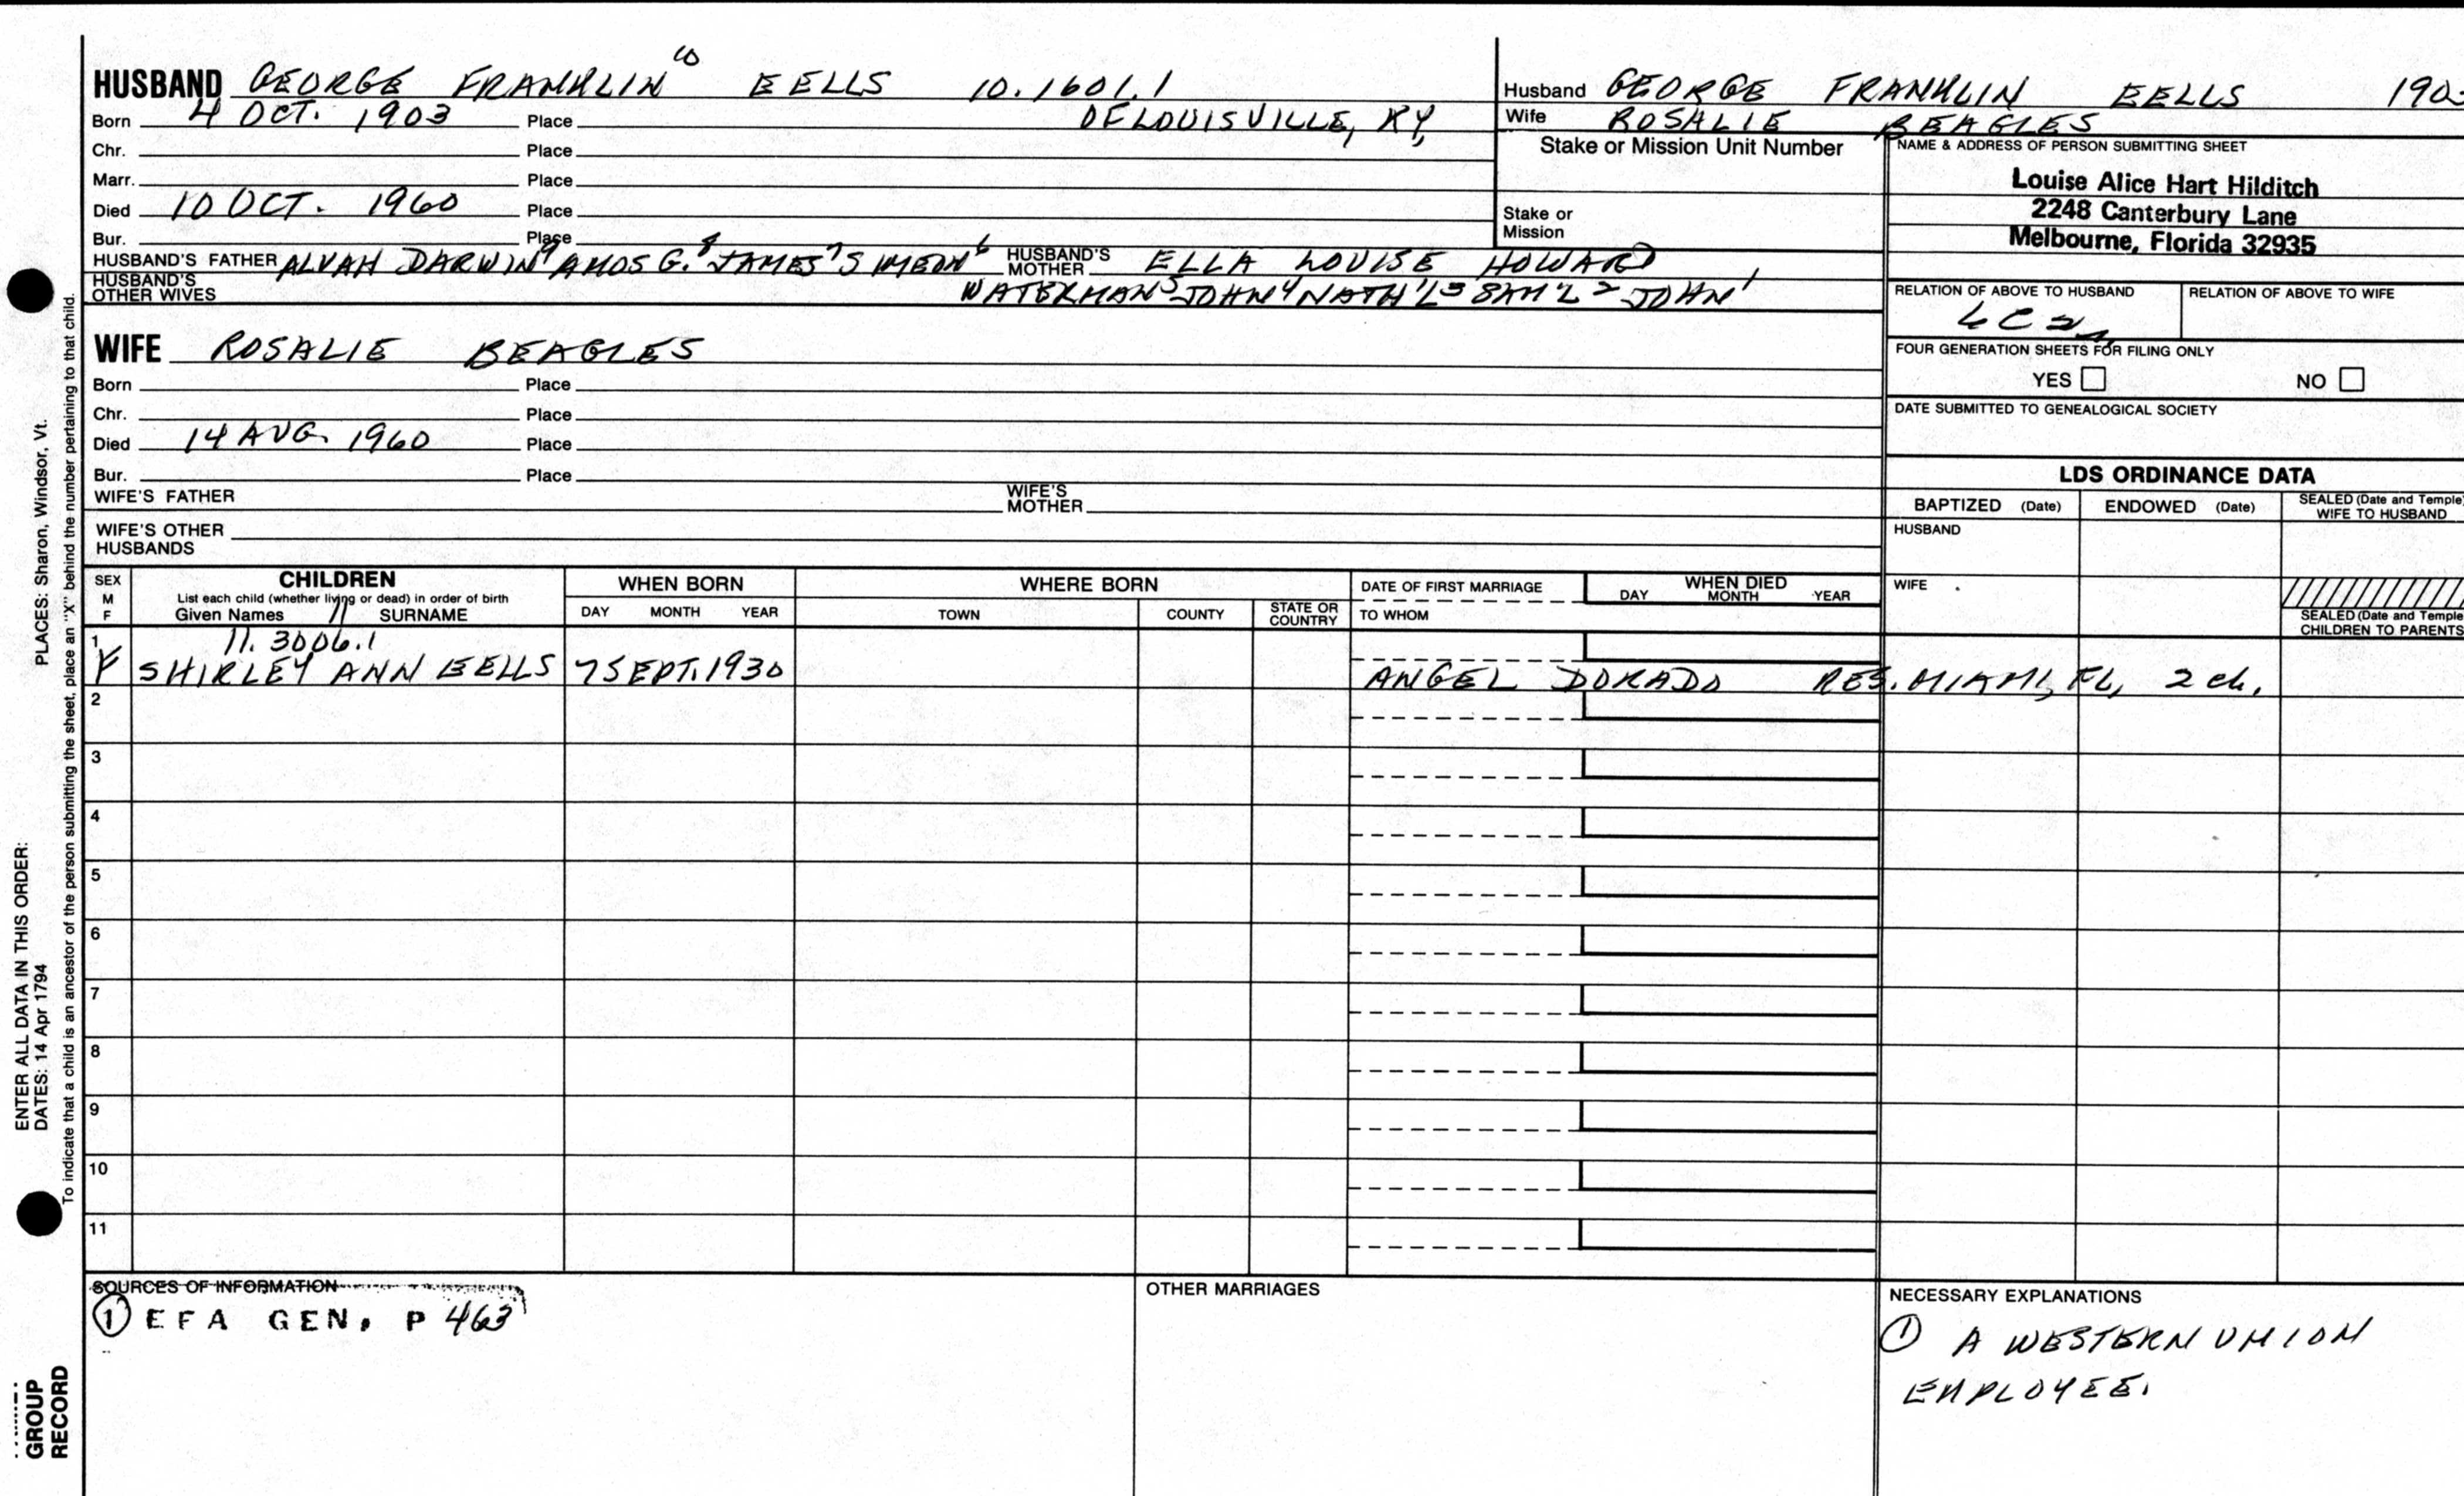 HUSBAND GEORGE FRANKLIN 10 EELLS 10.1601.1
Born 4 OCT. 1903 Place OF LOUISVILLE, KY,
Chr. Place
Marr. Place
Died 10 OCT. 1960 Place
Bur. Place
HUSBAND'S FATHER ALVAH DARWIN 9 AMOS G. 8 JAMES 7 SIMEON 6 HUSBAND'S MOTHER ELLA LOUISE HOWARD
HUSBAND'S OTHER WIVES WATERMAN 5 JOHN 4 NATH'L 3 SAM'L 2 JOHN 1
Husband GEORGE FRANKLIN EELLS 1903
Wife ROSALIE BEAGLES
Stake or Mission Unit Number
Stake or
Mission
NAME & ADDRESS OF PERSON SUBMITTING SHEET
Louise Alice Hart Hilditch
2248 Canterbury Lane
Melbourne, Florida 32935
RELATION OF ABOVE TO HUSBAND RELATION OF ABOVE TO WIFE
FOUR GENERATION SHEETS FOR FILING ONLY
YES NO
DATE SUBMITTED TO GENEALOGICAL SOCIETY
WIFE ROSALIE BEAGLES
Born Place
Chr. Place
Died 14 AUG. 1960 Place
Bur. Place
WIFE'S FATHER WIFE'S MOTHER
WIFE'S OTHER
HUSBANDS
LDS ORDINANCE DATA
BAPTIZED (Date) ENDOWED (Date) SEALED (Date and Temple) WIFE TO HUSBAND
HUSBAND
WIFE
SEALED (Date and Temple) CHILDREN TO PARENTS
SEX M F
CHILDREN
List each child (whether living or dead) in order of birth
Given Names 11 SURNAME
WHEN BORN
DAY MONTH YEAR
WHERE BORN
TOWN COUNTY STATE OR COUNTRY
DATE OF FIRST MARRIAGE
TO WHOM
WHEN DIED
DAY MONTH YEAR
1 11.3006.1
F SHIRLEY ANN EELLS 7 SEPT. 1930 ANGEL DORADO RES. MIAMI, FL, 2 ch.
2
3
4
5
6
7
8
9
10
11
SOURCES OF INFORMATION
① EFA GEN. P 463
OTHER MARRIAGES
NECESSARY EXPLANATIONS
① A WESTERN UNION
EMPLOYEE.
ENTER ALL DATA IN THIS ORDER:
DATES: 14 Apr 1794 PLACES: Sharon, Windsor, Vt.
To indicate that a child is an ancestor of the person submitting the sheet, place an "X" behind the number pertaining to that child.
GROUP
RECORD